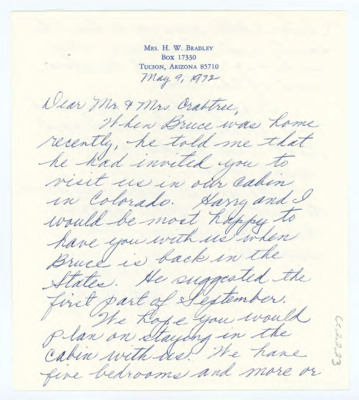 MRS. H. W. BRADLEY
BOX 17330
TUCSON, ARIZONA 85710
May 9, 1972
Dear Mr. & Mrs. Crabtree,
When Bruce was home
recently, he told me that
he had invited you to
visit us in our cabin
in Colorado. Harry and I
would be most happy to
have you with us when
Bruce is back in the
States. He suggested the
first part of September.
We hope you would
plan on staying in the
cabin with us. We have
five bedrooms and more or